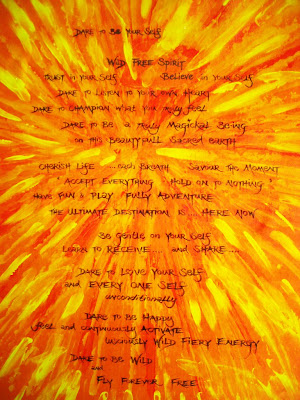 DARE to BE YOUR SELF
WILD FREE SPIRIT
TRUST in YOUR SELF Believe in YOUR SELF
DARE to LISTEN to YOUR OWN HEART
DARE to CHAMPION what YOU truly feel
DARE to Be a truly MAGICKAL BEING
on this BEAUTYFULL SACRED EARTH
CHERISH LIFE ..... each BREATH SAVOUR THIS MOMENT
" ACCEPT EVERYTHING HOLD ON TO NOTHING "
HAVE FUN & PLAY FULLY ADVENTURE
THE ULTIMATE DESTINATION is .... HERE NOW
BE GENTLE on YOUR SELF
LEARN to RECEIVE .... and SHARE ....
DARE to LOVE YOUR SELF
and EVERY ONE SELF
unconditionally
DARE to BE HAPPY
feel and continuously ACTIVATE
lusciously WILD FIERY ENERGY
DARE to BE WILD
and
FLY FOREVER FREE